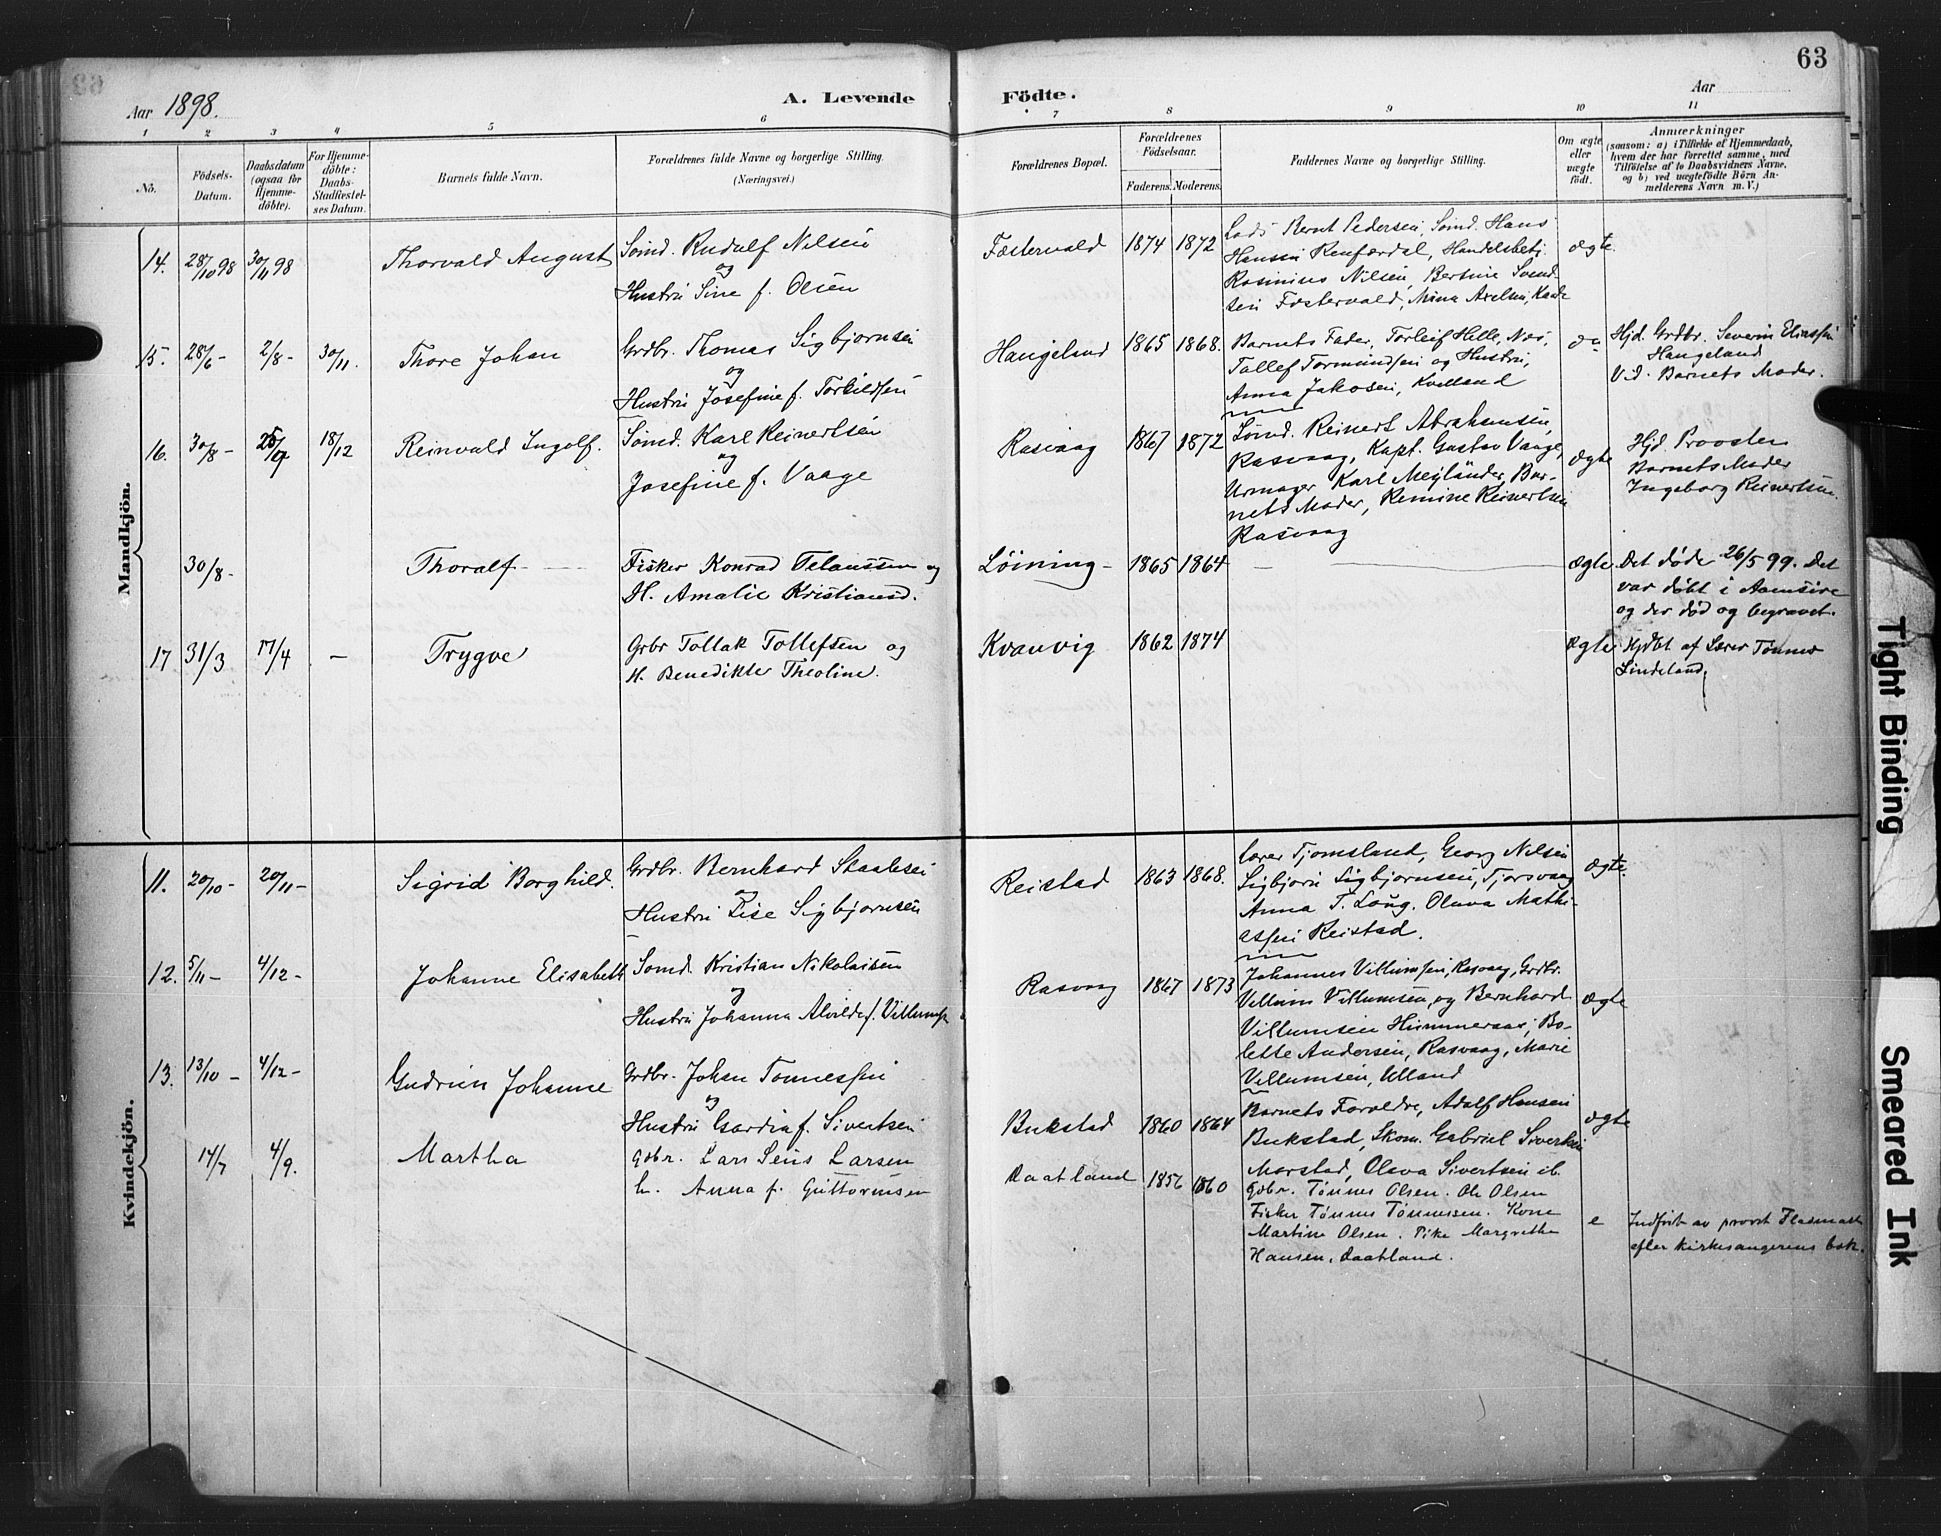 63
Aar 1898.
A. Levende Födte.
Aar
1 2 3 4 5 6 7 8 9 10 11
No.
Födsels-
Datum.
Daabsdatum
(ogsaa for
Hjemme-
döbte).
For Hjemme-
döbte:
Daabs-
Stadfæstel-
ses Datum.
Barnets fulde Navn.
Forældrenes fulde Navne og borgerlige Stilling.
(Næringsvei.)
Forældrenes Bopæl.
Forældrenes
Födselsaar.
Faderens. Moderens.
Faddernes Navne og borgerlige Stilling.
Om ægte
eller
uægte
födt.
Anmærkninger
(saasom: a) i Tilfælde af Hjemmedaab,
hvem der har forrettet samme, med
Tilföielse af to Daabsvidners Navne,
og b) ved uægtefödte Börn An-
melderens Navn m. V.)
Mandkjön.
14. 28/10 98 30/11 98 Thorvald August
Sømd. Rudolf Nilsen
og
Hustru Sine f. Olsen
Fæstervold 1874 1872
Lods Bernt Pedersen, Sømd. Hans
Hansen Renfærdal, Handelsbetj.
Rasmines Nilsen, Bertine Svend-
sen Fæstervold, Mina Axelsen,
ægte
15. 28/6 - 2/8 - 30/11. Thore Johan
Grdbr. Thomas Sigbjørnsen
og
Hustru Josefine f. Torkildsen
Haugeland 1865 1868.
Barnets Fader, Torleif Hille, Næs,
Tollef Tormundsen og Hustru,
Anna Jakobsen, Kvelland
do
Hjd. Grdbr. Severin Eliassen
Haugeland
Vid. Barnets Moder.
16. 30/8 - 18/12 Reinvald Ingolf.
Sømd. Karl Reinertsen
og
Josefine f. Vaage
Rasvaag 1867 1872
Sømd. Reinert Abrahamsen,
Rasvaag, Kapt. Gustav Vaage,
Urmager Karl Meylænder, Bar-
nets Moder, Remine Reinertsen
Rasvaag
ægte
Hjd. Provsten
Barnets Moder
Ingeborg Reinertsen.
30/8 - Thoralf
Fisker Konrad Telaussen og
H. Amalie Kristiansd.
Löining - 1865 1864
ægte.
Det döde 26/5 99. Det
var döbt i Aamsire
og der död og begravet.
17 31/3 17/4 - Trygve
Grbr Tollak Tollefsen og
H. Benedikte Theoline.
Kvanvig 1862 1874
ægte
Hjdbt af Lærer Tönnes
Lindeland.
Kvindekjön.
11. 20/10 - 20/11 - Sigrid Borghild.
Grdbr. Bernhard Staalesen
og
Hustru Lise Sigbjørnsen
Reistad 1863 1868.
Lærer Tjomsland, Georg Nilsen
Sigbjørn Sigbjørnsen, Tjorsvaag
Anna T. Loug. Oluva Mathi-
assen Reistad.
ægte.
12. 5/11 - 4/12 - Johanne Elisabeth
Sømd. Kristian Nikolaisen
og
Hustru Johanna Alvilde f. Villumsn
Rasvaag 1867 1873
Johannes Villumsen, Rasvaag, Grdbr.
Villum Villumsen, og Bernhard
Villumsen Hummeraas, Bo-
lette Andersen, Rasvaag, Marie
Villumsen, Ulland
ægte
13. 13/10 - 4/12 - Gudrun Johanne
Grdbr. Johan Tønnessen
og
Hustru Gardia f. Sivertsen
Bukstad 1860 1864
Barnets Forældre, Adolf Hansen
Bukstad, Skom. Gabriel Sivertsen
Morstad, Oleva Sivertsen ib.
ægte
14/7 4/9. Martha
Gdbr. Lars Jens Larsen
h. Anna f. Guttormsen
Daatland 1856 1860
Gdbr. Tönnes Olsen. Ole Olsen
Fisker Tönnes Tönnessen. Kone
Martine Olsen. Pike Margrethe
Hansen, Daatland.
e
Indført av provst Flasmark
efter kirkesangerens bok.
Tight Binding
Smeared Ink